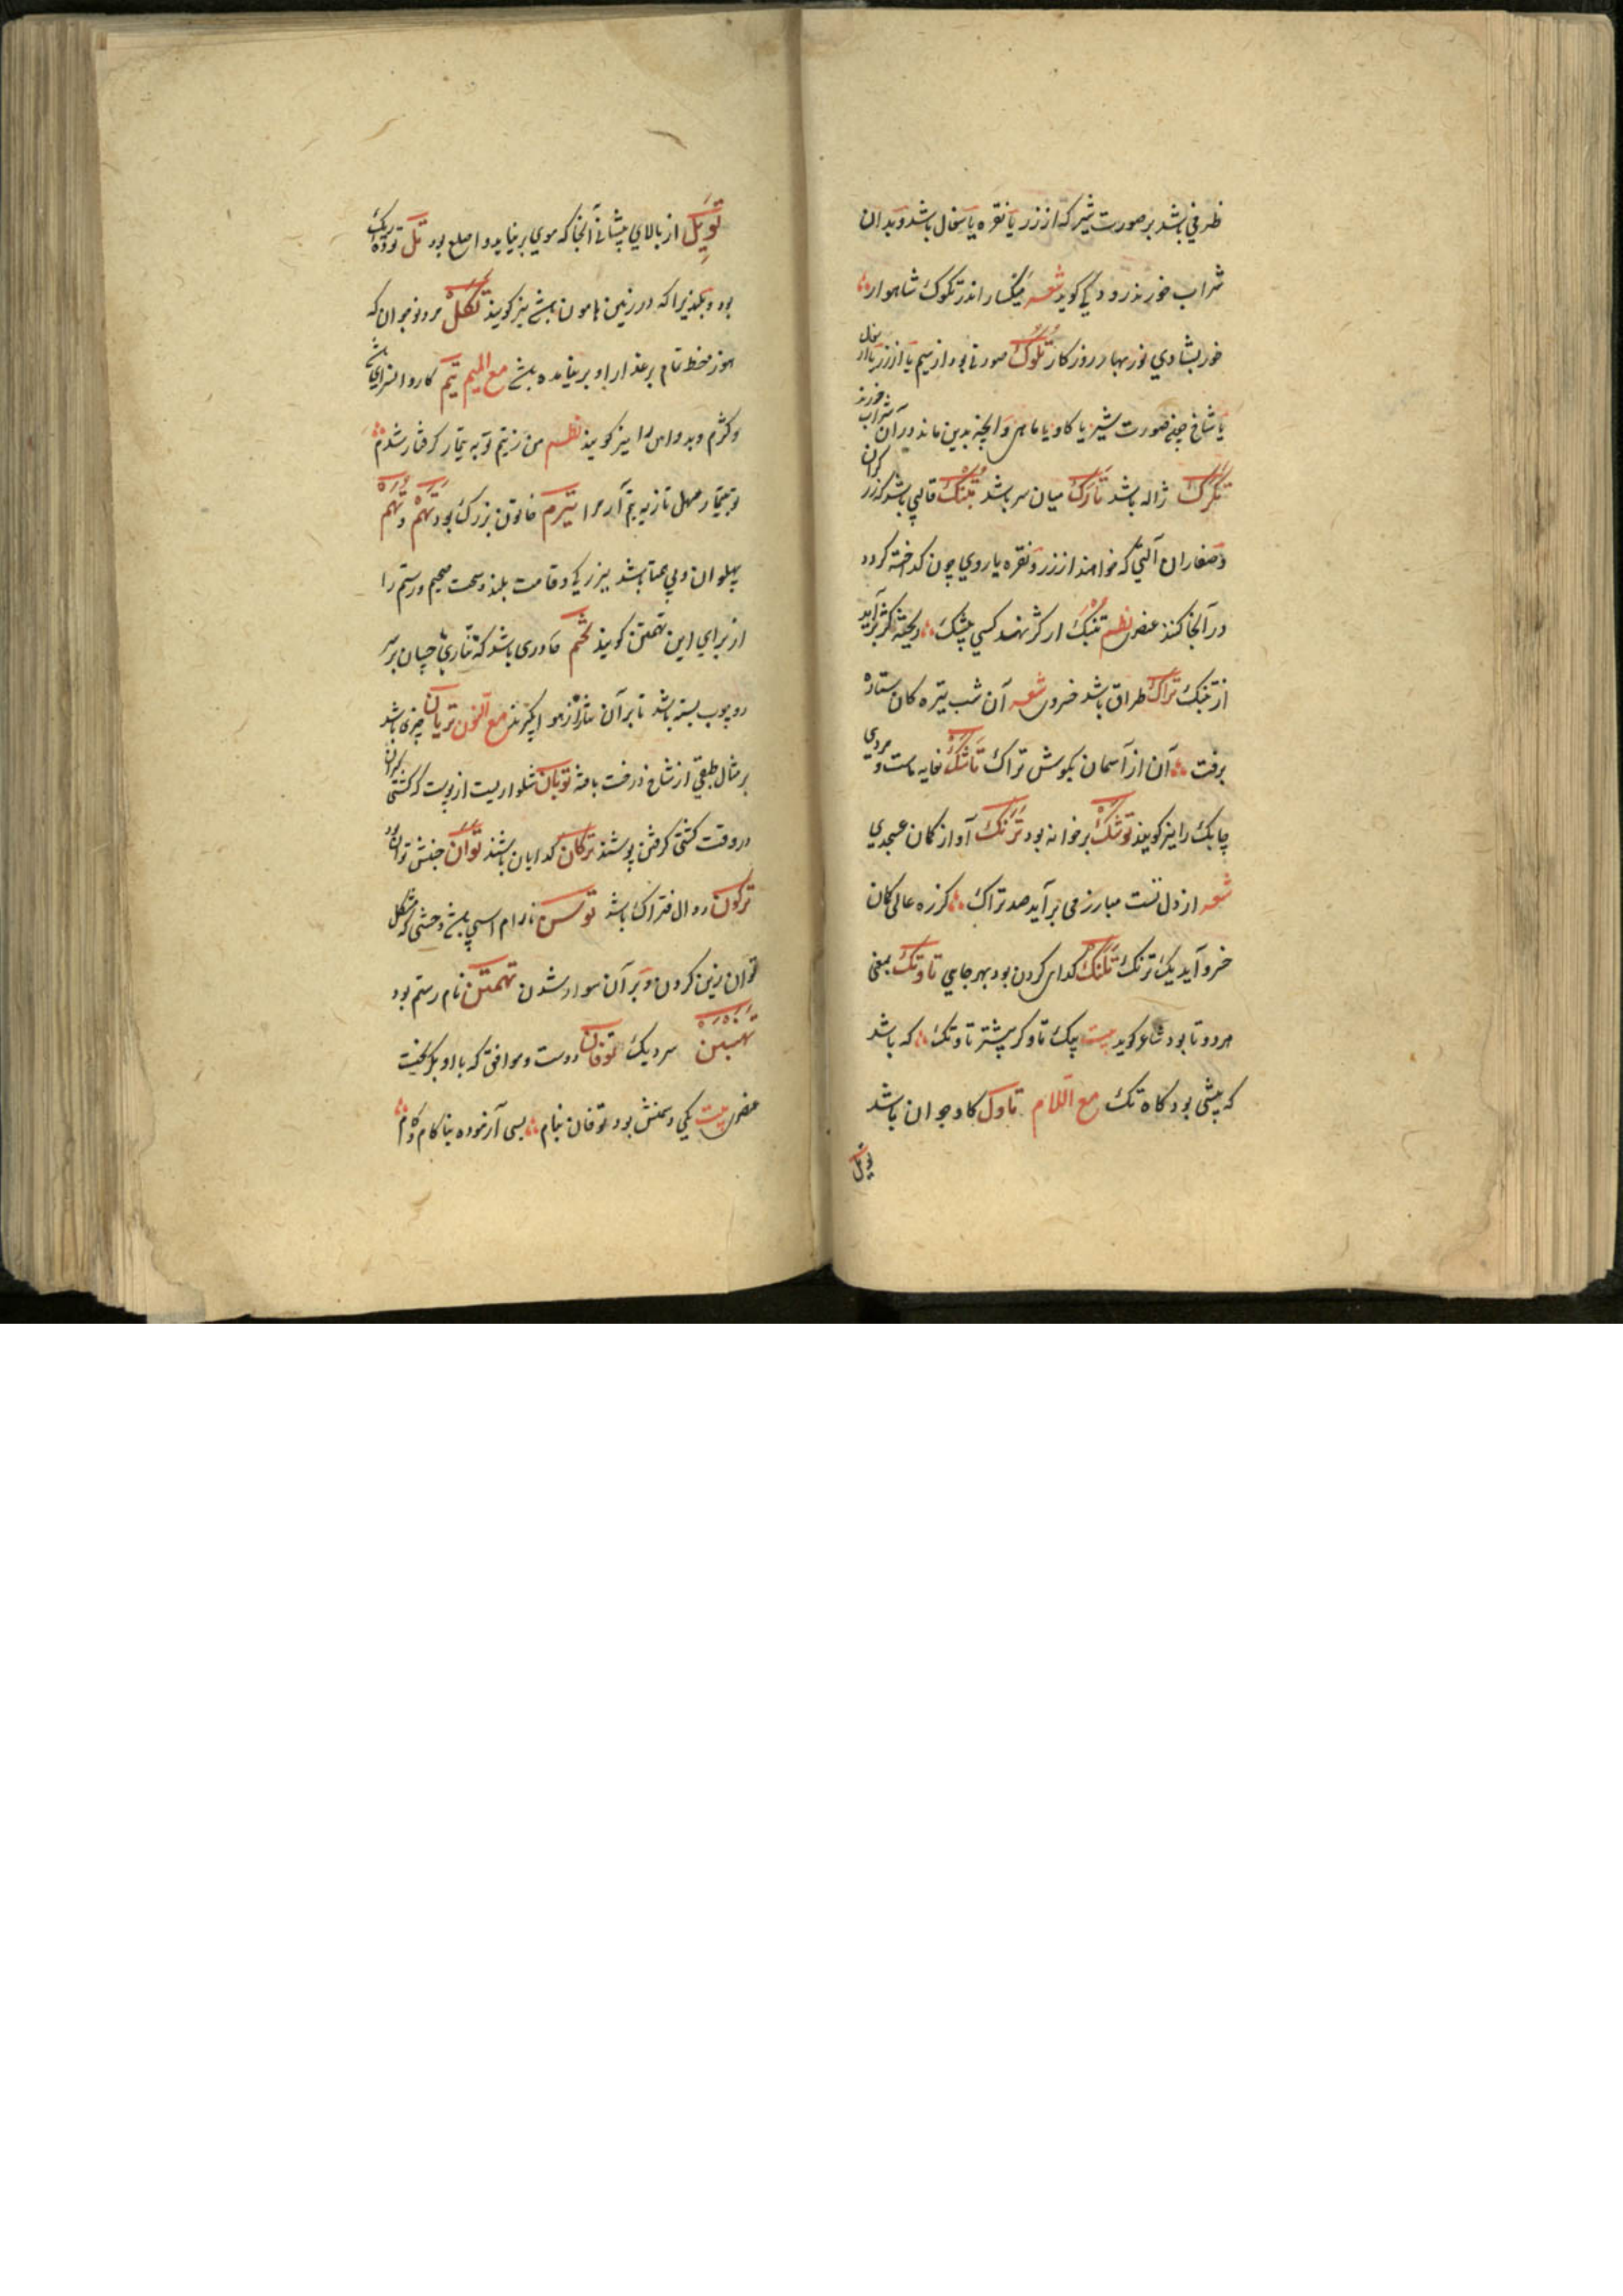 ظرفی باشد بر صورت شیر که از زر یا نقره یا سفال باشد و بدان
شراب خورند رودکی کوید شعر میکسار اندر تکوک شاهوار
خور بشادی نوربهار روزکار تلوک صورتی بود از سیم یا از زر یا از سفال
یا شاخ بعضی صورت شیر یا کاو یا ماهی و آنچه بدین ماند در آن شراب خورند
تکرک ژاله باشد تارک میان سر باشد تبنک قالبی باشد که زرکران
و صفاران آلتی که خواهند از زر و نقره یا روی چون کداخته کردد
در آنجا کنند نظم تبنک ار کژ نهد کسی ریخته کژ برآید
از تبنک تراک طراق باشد خسروی شعر آن شب تیره کان ستاره
برفت آن از آسمان بکوش تراک تاشک خایه ماست و مردی
چابک را نیز کویند توشک برخوابه بود ترنک آواز کمان عسجدی
شعر از دل تست مبارز می برآید صد تراک کز زه عالی کمان
خسرو آید یک ترنک تلنک کدایی کردن بود بهر جایی تاوتک بمعنی
هر دو تا بود شاعر کوید بیت که باشد
که بیشی بود کاه تک مع اللام تاول کاو جوان باشد
تویل
تویل از بالای پیشانی آنجا که موی برنیاید و اصلع بود تل توده ریک
بود و که در زمین هامون باشد نیز کویند تکل مرد نوجوان که
هنوز خط تمام بر عذار او برنیامده باشد مع المیم تیم کاروانسرای باشد
را نیز کویند نظم من ز تیم تو به تیمار کرفتار شدم
تو بتیمار مهل بازبه تیم آر مرا تیرم خاتون بزرک بود تهم و تهم
پهلوان و بی همتا باشد ببزرکی و قامت بلند و رستم را
از برای این تهمتن کویند تخم چادری باشد که نثارچیان بر سر
دو چوب بسته باشد تا بر آن نثار از هوا بکیرند مع النون تریان چیزی باشد
بر مثال طبقی از شاخ درخت بافته توبان شلواریست از پوست که کشتی کیران
در وقت کشتی کرفتن پوشند ترکان کدایان باشند توان جنبش توانی بود
ترکون دوال فتراک باشد توسن نارام اسبی باشد وحشی که مشکل
توان زین کردن و بر آن سوار شدن تهمتن نام رستم بود
تهنبن سر دیک توفان دوست و موافق که با او
بیت یکی دشمنش بود توفان بنام بسی آزموده بناکام و کام